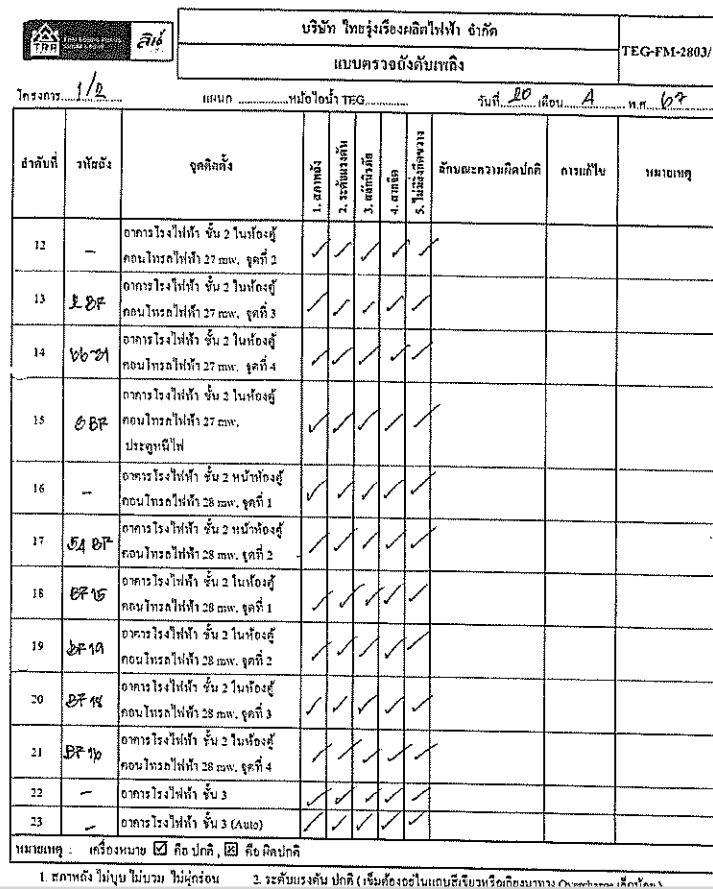 TRR
สิน
บริษัท ไทยรุ่งเรืองผลิตไฟฟ้า จำกัด
แบบตรวจถังดับเพลิง
TEG-FM-2803/
โครงการ 1/2 แผนก หม้อไอน้ำ TEG วันที่ 20 เดือน A พ.ศ. 67
ลำดับที่ รหัสถัง จุดติดตั้ง 1. สภาพถัง 2. ระดับแรงดัน 3. สลักนิรภัย 4. สายฉีด 5. ไม่มีสิ่งกีดขวาง ลักษณะความผิดปกติ การแก้ไข หมายเหตุ
12 – อาคารโรงไฟฟ้า ชั้น 2 ในห้องตู้
คอนโทรลไฟฟ้า 27 mw. จุดที่ 2 ✓ ✓ ✓ ✓ ✓
13 BF อาคารโรงไฟฟ้า ชั้น 2 ในห้องตู้
คอนโทรลไฟฟ้า 27 mw. จุดที่ 3 ✓ ✓ ✓ ✓ ✓
14 อาคารโรงไฟฟ้า ชั้น 2 ในห้องตู้
คอนโทรลไฟฟ้า 27 mw. จุดที่ 4 ✓ ✓ ✓ ✓ ✓
15 BF อาคารโรงไฟฟ้า ชั้น 2 ในห้องตู้
คอนโทรลไฟฟ้า 27 mw. ✓ ✓ ✓ ✓ ✓
ประตูหนีไฟ
16 – อาคารโรงไฟฟ้า ชั้น 2 หน้าห้องตู้
คอนโทรลไฟฟ้า 28 mw. จุดที่ 1 ✓ ✓ ✓ ✓ ✓
17 54 BF อาคารโรงไฟฟ้า ชั้น 2 หน้าห้องตู้
คอนโทรลไฟฟ้า 28 mw. จุดที่ 2 ✓ ✓ ✓ ✓ ✓
18 BF 15 อาคารโรงไฟฟ้า ชั้น 2 ในห้องตู้
คอนโทรลไฟฟ้า 28 mw. จุดที่ 1 ✓ ✓ ✓ ✓ ✓
19 BF 19 อาคารโรงไฟฟ้า ชั้น 2 ในห้องตู้
คอนโทรลไฟฟ้า 28 mw. จุดที่ 2 ✓ ✓ ✓ ✓ ✓
20 BF 18 อาคารโรงไฟฟ้า ชั้น 2 ในห้องตู้
คอนโทรลไฟฟ้า 28 mw. จุดที่ 3 ✓ ✓ ✓ ✓ ✓
21 BF 16 อาคารโรงไฟฟ้า ชั้น 2 ในห้องตู้
คอนโทรลไฟฟ้า 28 mw. จุดที่ 4 ✓ ✓ ✓ ✓ ✓
22 – อาคารโรงไฟฟ้า ชั้น 3 ✓ ✓ ✓ ✓ ✓
23 – อาคารโรงไฟฟ้า ชั้น 3 (Auto) ✓ ✓ ✓ ✓ ✓
หมายเหตุ : เครื่องหมาย ☑ คือ ปกติ , ☒ คือ ผิดปกติ
1. สภาพถัง ไม่บุบ ไม่บวม ไม่ผุกร่อน 2. ระดับแรงดัน ปกติ ( เข็มต้องอยู่ในแถบสีเขียวหรือเกือบมาทาง Overcharge เล็กน้อย )